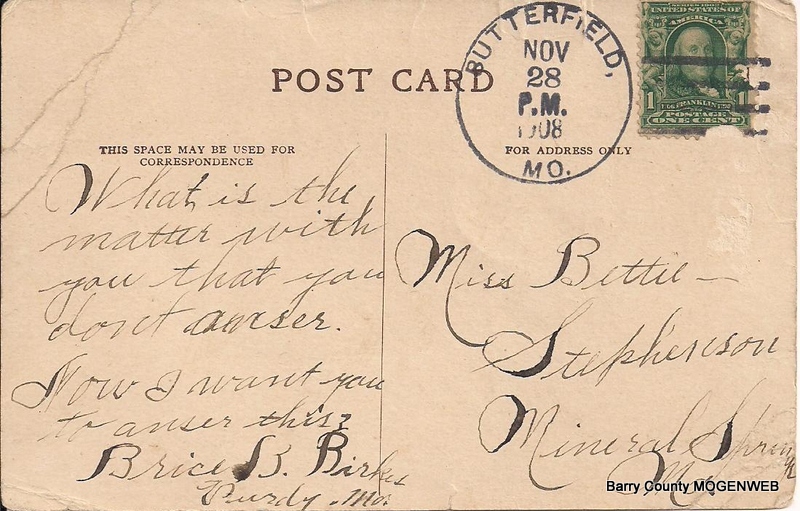 POST CARD
BUTTERFIELD,
NOV
28
P.M.
1908
MO.
SERIES 1902
UNITED STATES OF
AMERICA
1 FRANKLIN 1
POSTAGE
ONE CENT
THIS SPACE MAY BE USED FOR
CORRESPONDENCE
FOR ADDRESS ONLY
What is the
matter with
you that you
dont anser.
Now I want you
to anser this
Brice B. Birkes
Purdy, Mo.
Miss Bettie
Stephenson
Mineral Spring
Mo.
Barry County MOGENWEB